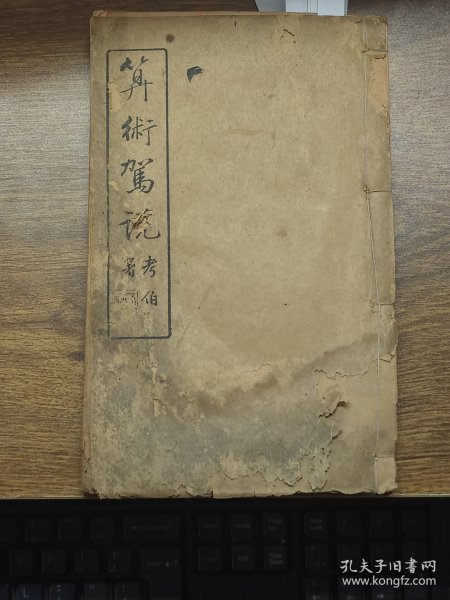 算術駕說
考伯
署
孔夫子旧书网
www.kongfz.com